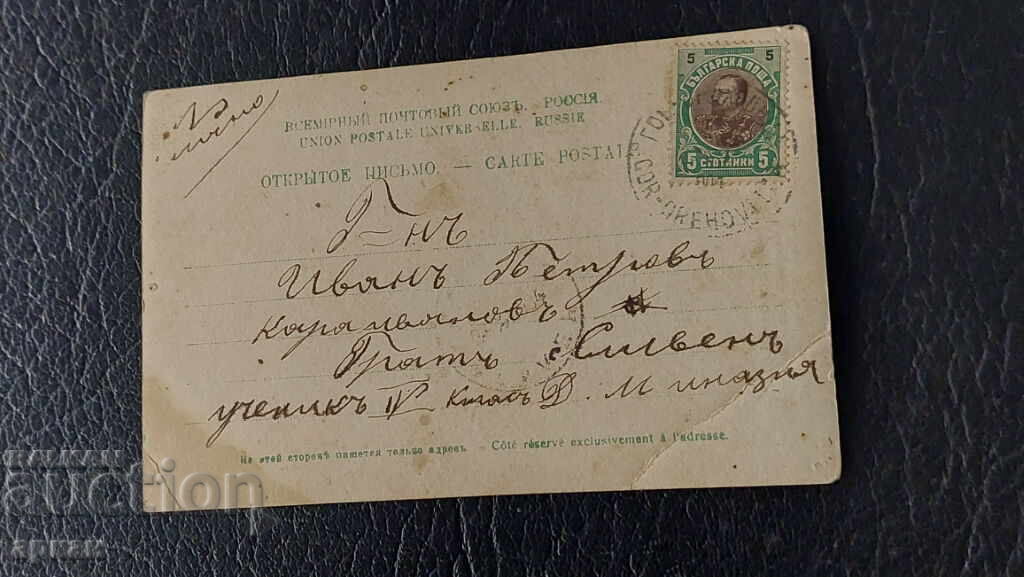 лично
ВСЕМІРНЫЙ ПОЧТОВЫЙ СОЮЗЪ. РОССІЯ.
UNION POSTALE UNIVERSELLE. RUSSIE
ОТКРЫТОЕ ПИСЬМО. — CARTE POSTAL
5 5
БЪЛГАРСКА ПОЩА
5 СТОТИНКИ 5
GOR-OREHOV
Г-нъ
Иванъ Петровъ
Караивановъ
Гратъ Сливенъ
ученикъ IV Класъ Д. М иназия
На этой сторонѣ пишется только адресъ. — Côté réservé exclusivement à l'adresse.
auction
арпак